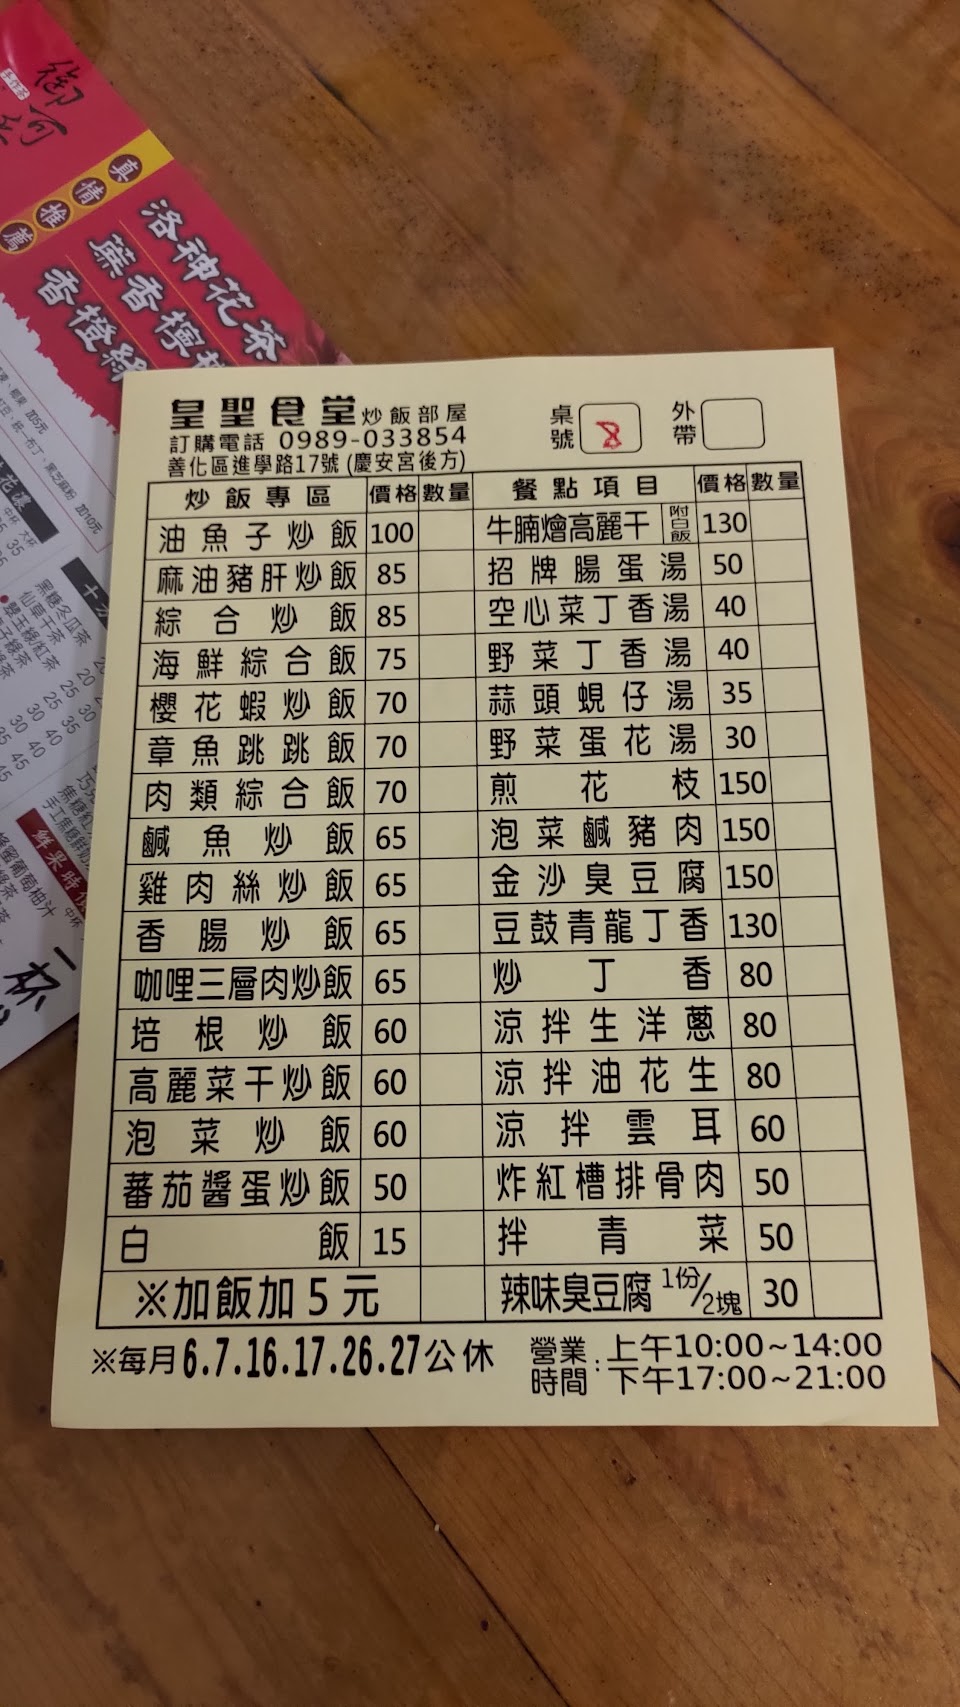 御
可
真情推薦
洛神花茶
蔗香檸
香橙綠
加5元
加10元
黑糖冬瓜茶
仙草干茶
鮮果時
皇聖食堂炒飯部屋
桌號 8
外帶
訂購電話 0989-033854
善化區進學路17號(慶安宮後方)
炒飯專區 價格 數量 餐點項目 價格 數量
油魚子炒飯 100 牛腩燴高麗干 附白飯 130
麻油豬肝炒飯 85 招牌腸蛋湯 50
綜合炒飯 85 空心菜丁香湯 40
海鮮綜合飯 75 野菜丁香湯 40
櫻花蝦炒飯 70 蒜頭蜆仔湯 35
章魚跳跳飯 70 野菜蛋花湯 30
肉類綜合飯 70 煎花枝 150
鹹魚炒飯 65 泡菜鹹豬肉 150
雞肉絲炒飯 65 金沙臭豆腐 150
香腸炒飯 65 豆鼓青龍丁香 130
咖哩三層肉炒飯 65 炒丁香 80
培根炒飯 60 涼拌生洋蔥 80
高麗菜干炒飯 60 涼拌油花生 80
泡菜炒飯 60 涼拌雲耳 60
蕃茄醬蛋炒飯 50 炸紅槽排骨肉 50
白飯 15 拌青菜 50
※加飯加5元 辣味臭豆腐 1份/2塊 30
※每月6.7.16.17.26.27公休
營業時間:上午10:00~14:00
下午17:00~21:00